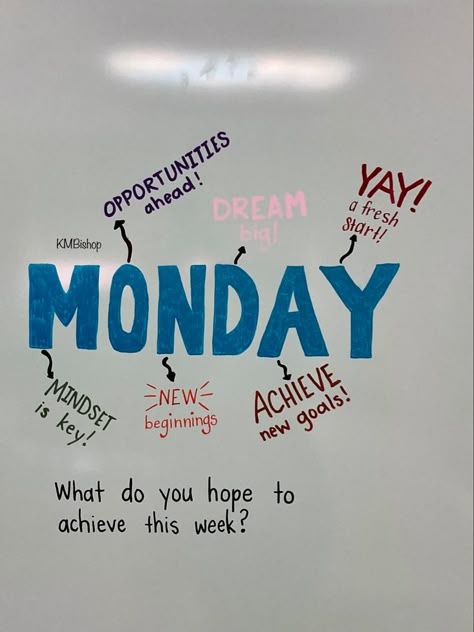 OPPORTUNITIES
ahead!
DREAM
big!
YAY!
a fresh
start!
KMBishop
MONDAY
MINDSET
is key!
NEW
beginnings
ACHIEVE
new goals!
What do you hope to
achieve this week?